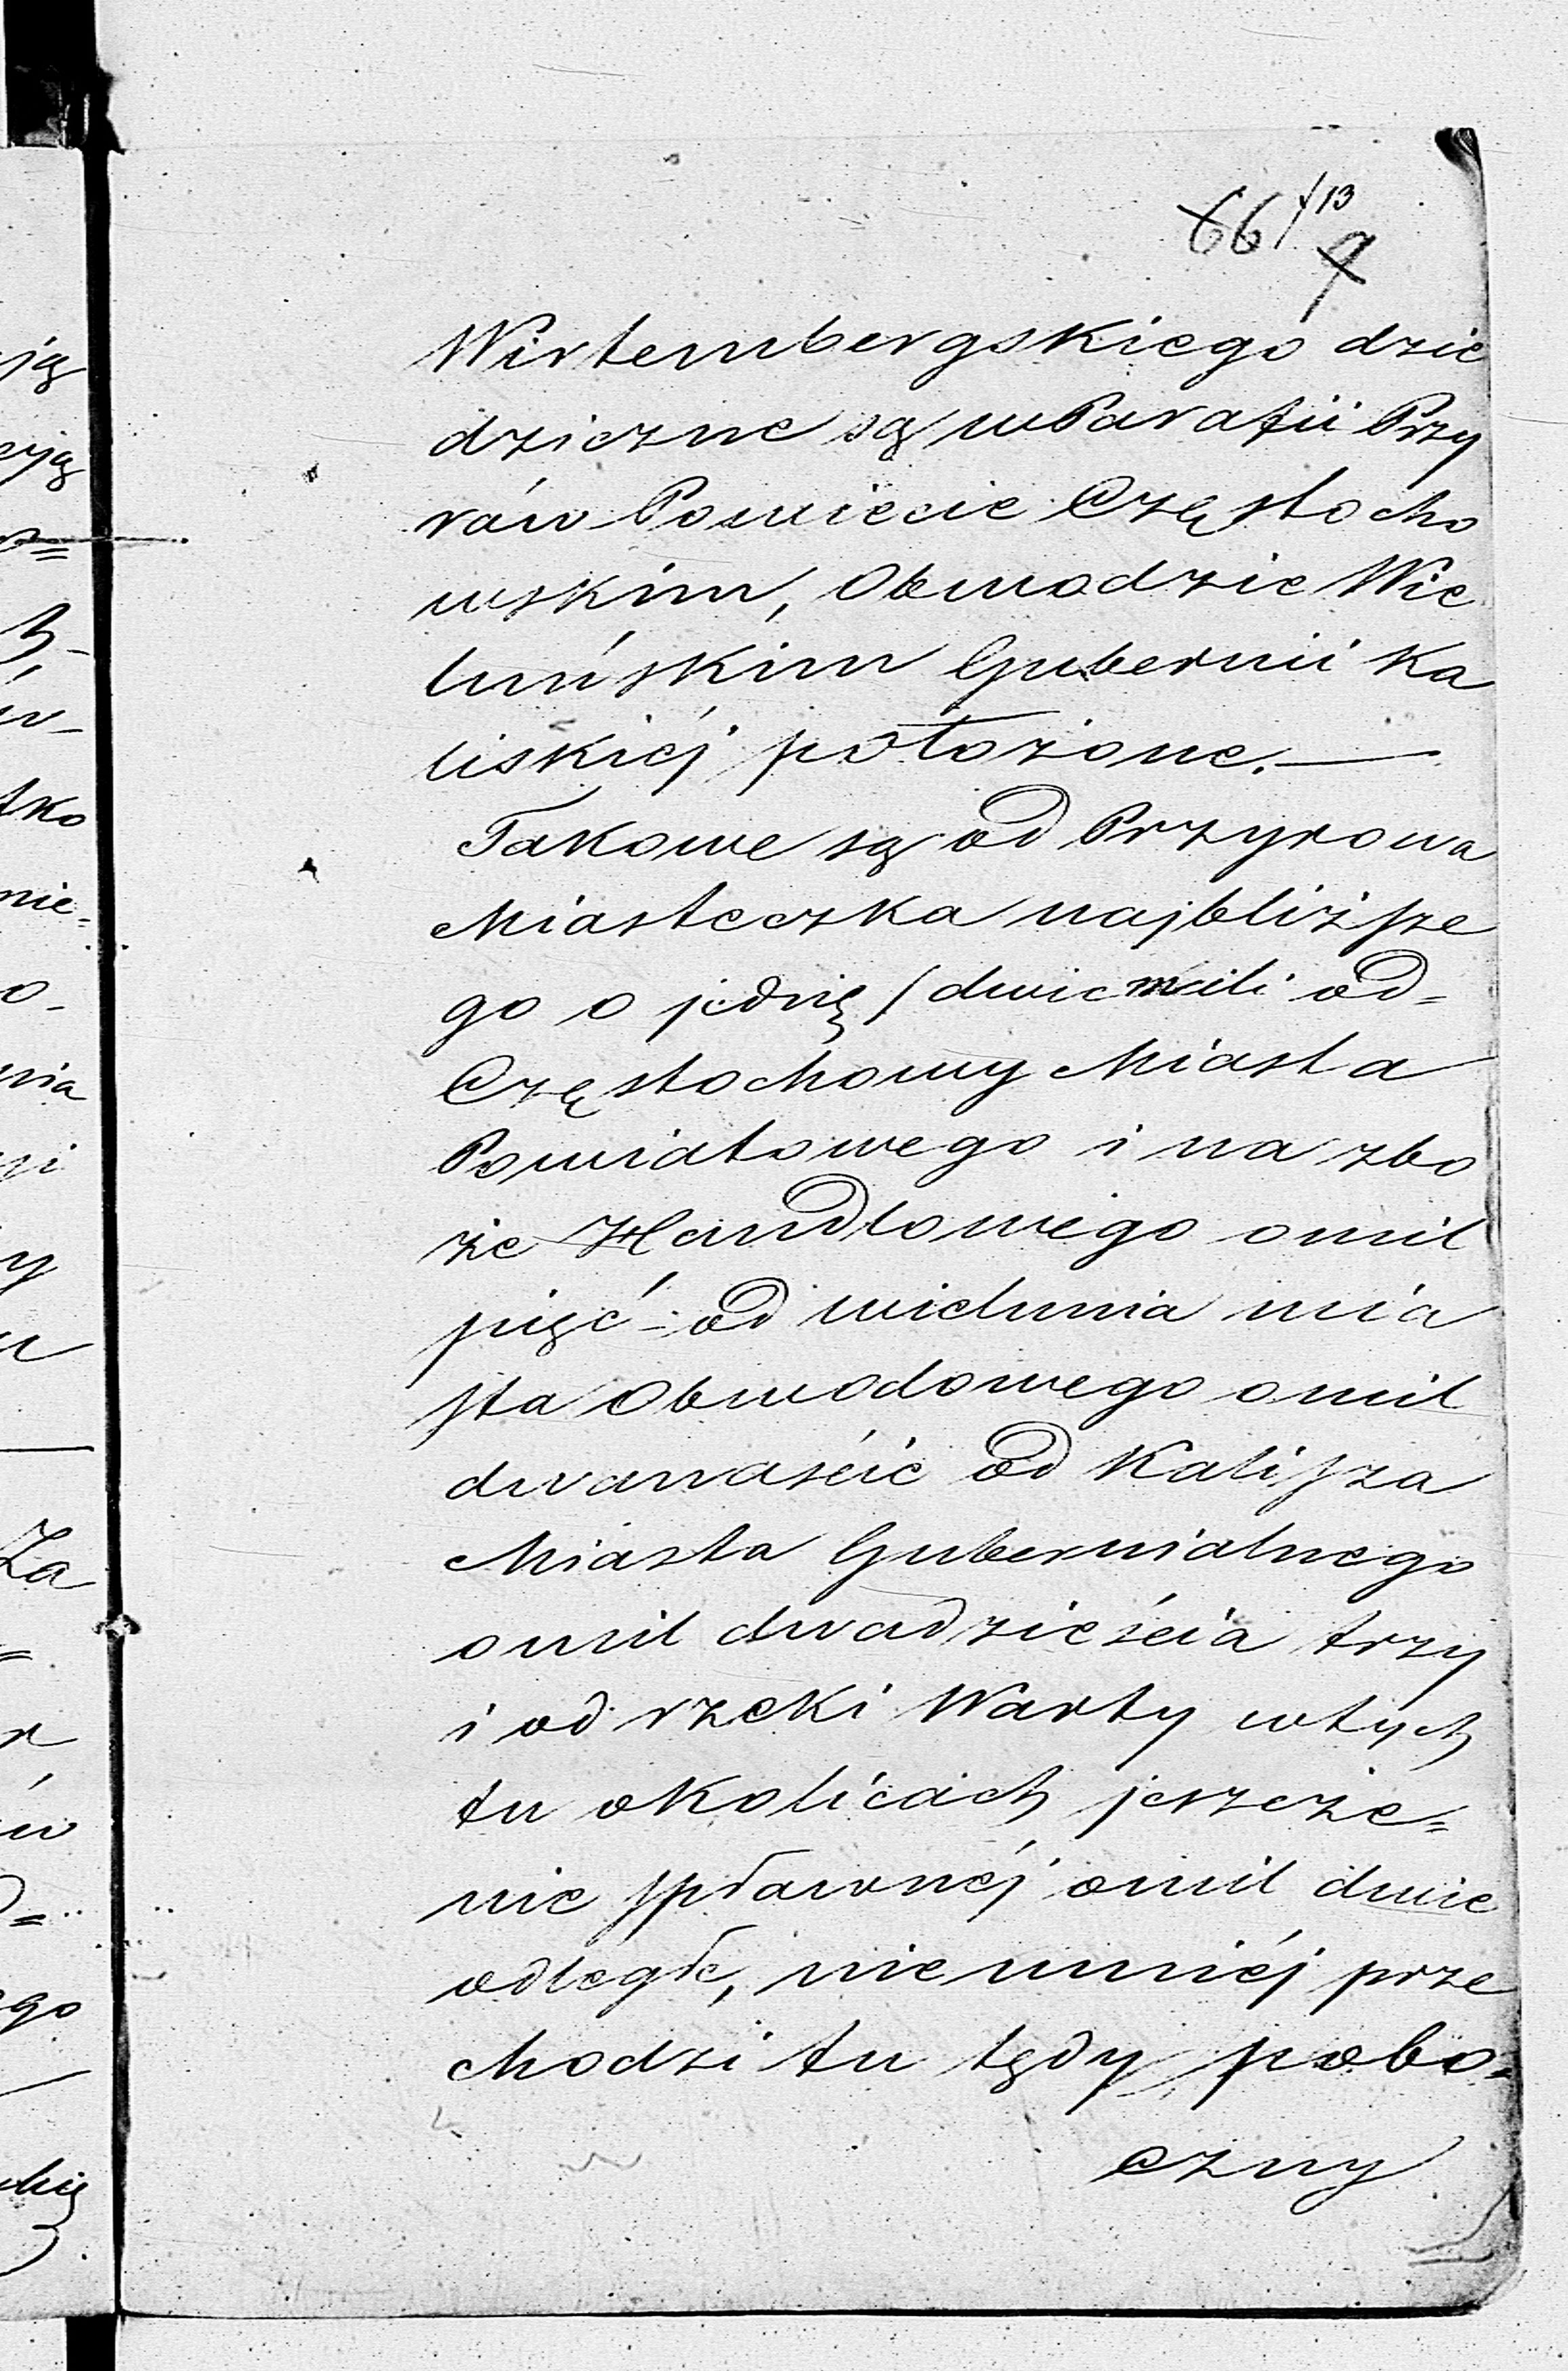 661 113
7
Wirtembergskiego dzie
dziczne są w Parafii Przy
rów Powiecie Często cho
wskim, Obwodzie Wie
luńskim Gubernii Ka
liskiéj położone. —
Takowe są od Przyrowa
Miasteczka najbliższe
go o jednę / dwie mili od=
Częstochowy Miasta
Powiatowego i na zbo
że Handlowego o mil
pięć - od wielunia mia
sta Obwodowego o mil
dwanaście od Kalisza
Miasta Gubernialnego
o mil dwadzieścia trzy
i od rzeki Warty w tych
tu okolicach jeszcze=
nie spławnéj o mil dwie
odległe, nie mniéj prze
chodzi tu tędy pobo=
czny